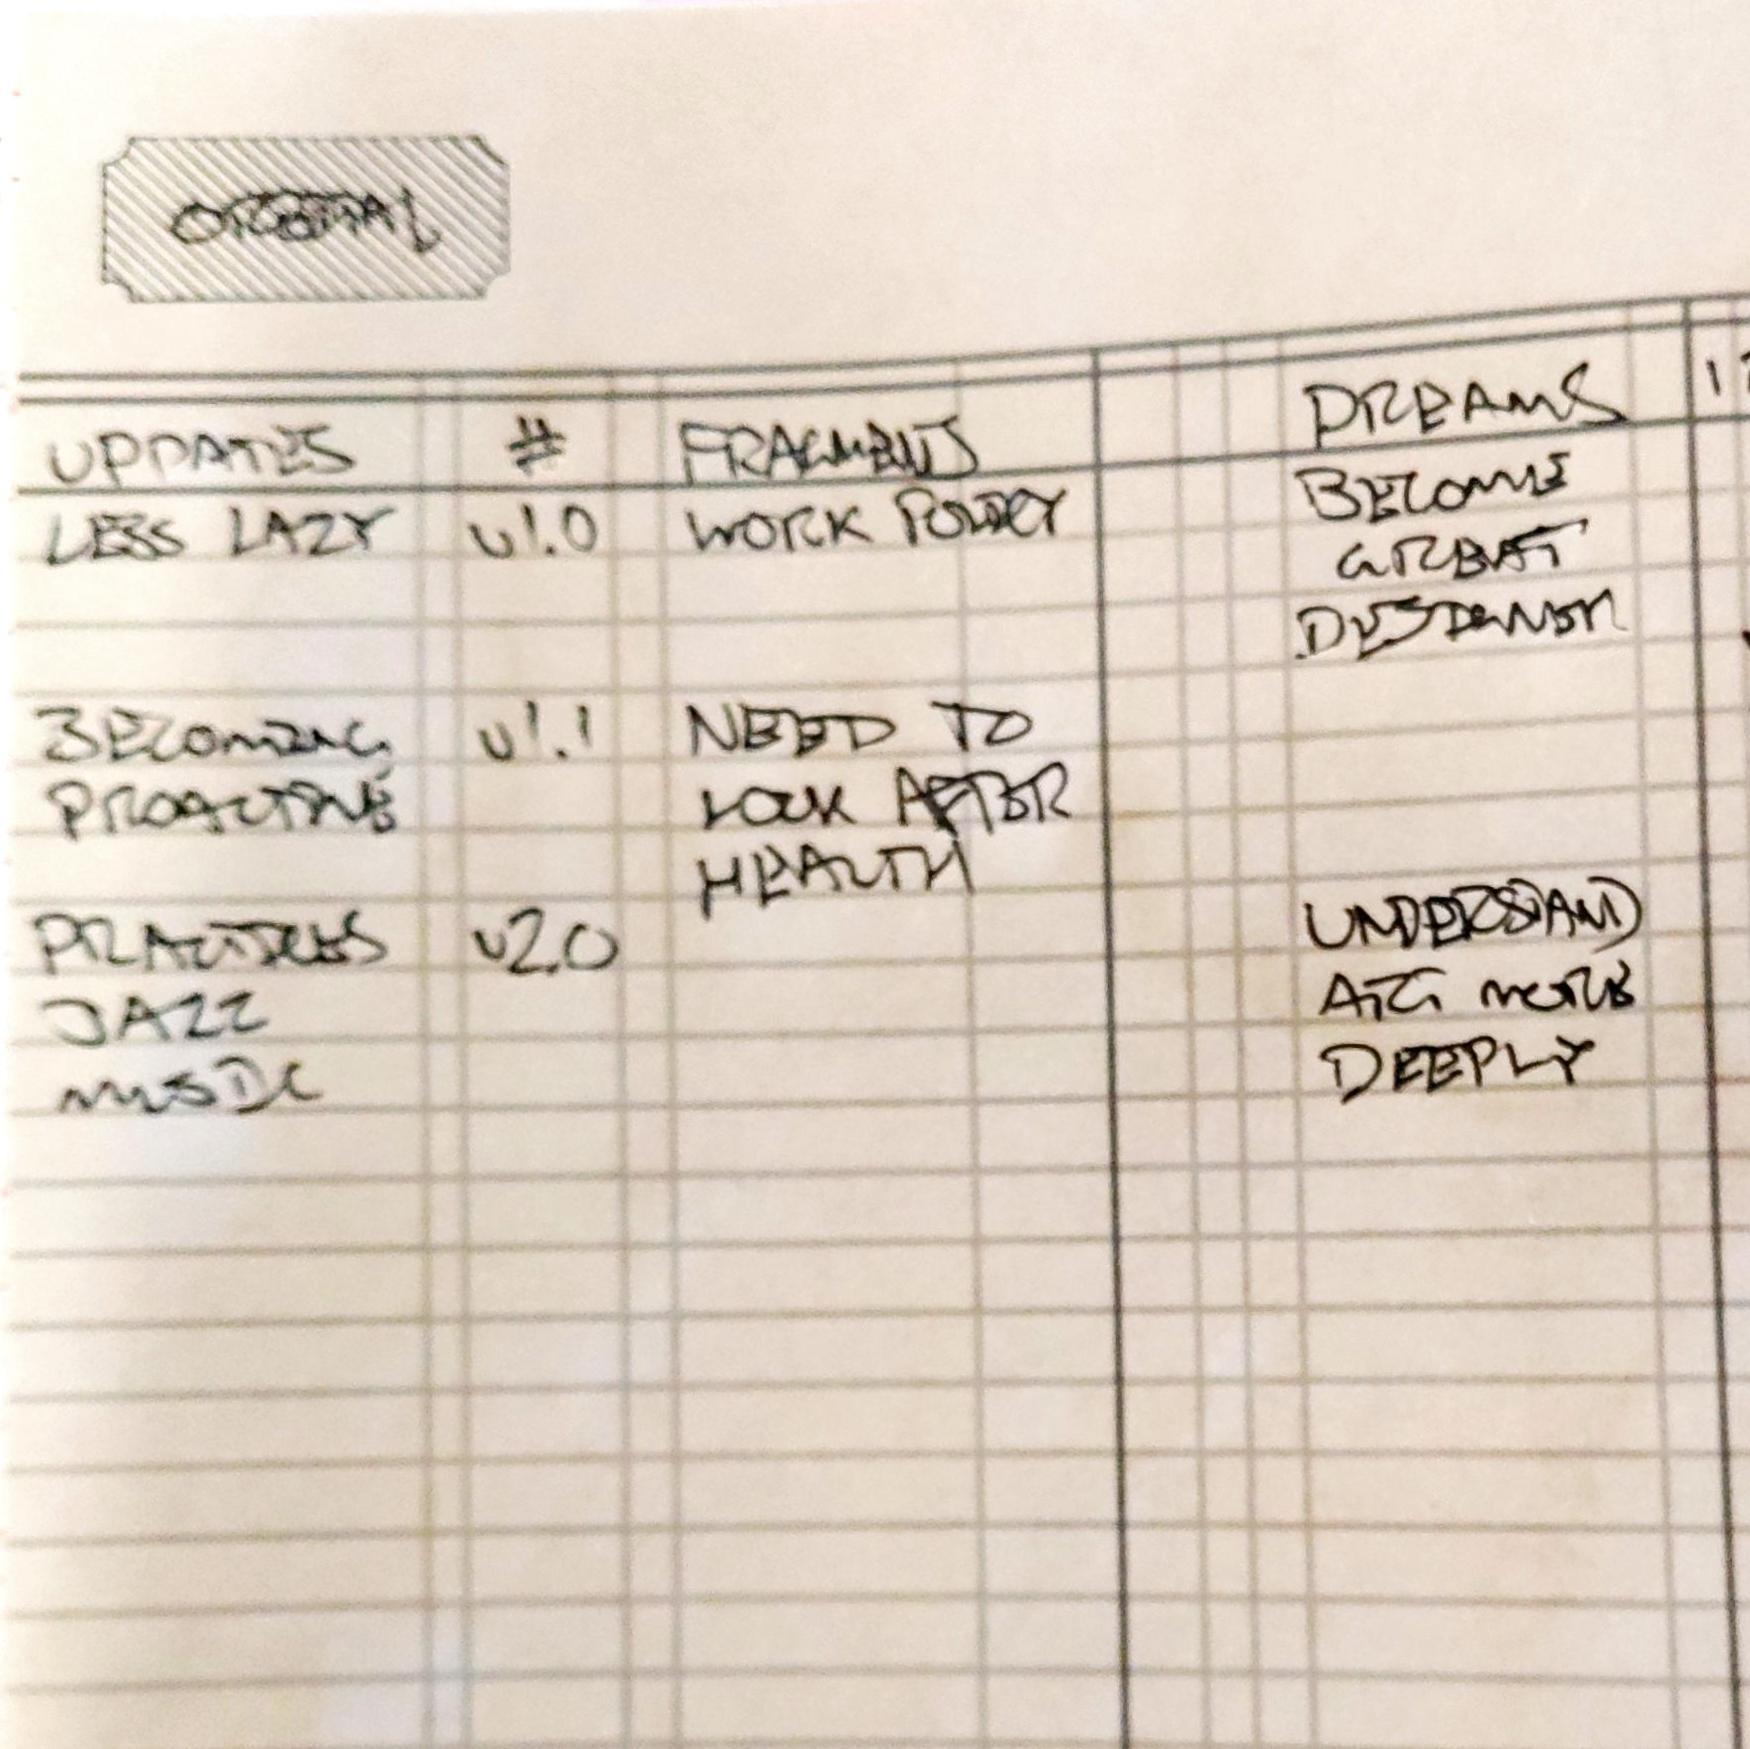 UPDATES # FRAGMENTS DREAMS
LESS LAZY v1.0 WORK POLICY BECOME
GREAT
DESIGNER
BECOMING v1.1 NEED TO
PROACTIVE LOOK AFTER
HEALTH
PRACTICES v2.0 UNDERSTAND
JAZZ MORE
MUSIC DEEPLY